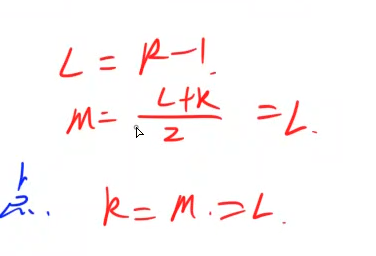 L = R-1.
m = \frac{L+R}{2} = L.
R = m. = L.